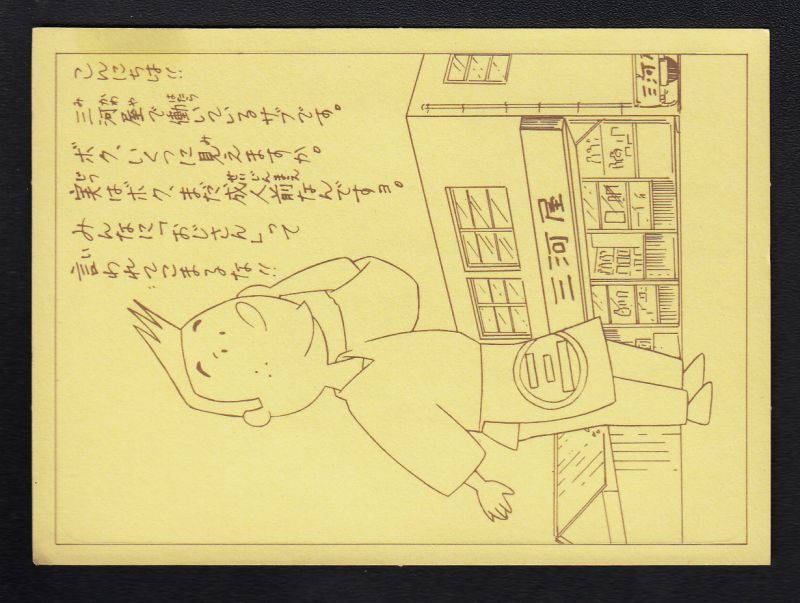 こんにちは!!
三河屋で働いているサブです。
ボク、いくつに見えますか。
実はボク、まだ成人前なんですョ。
みんなに「おじさん」って
言われてこまるな!!
三河屋
三河
三